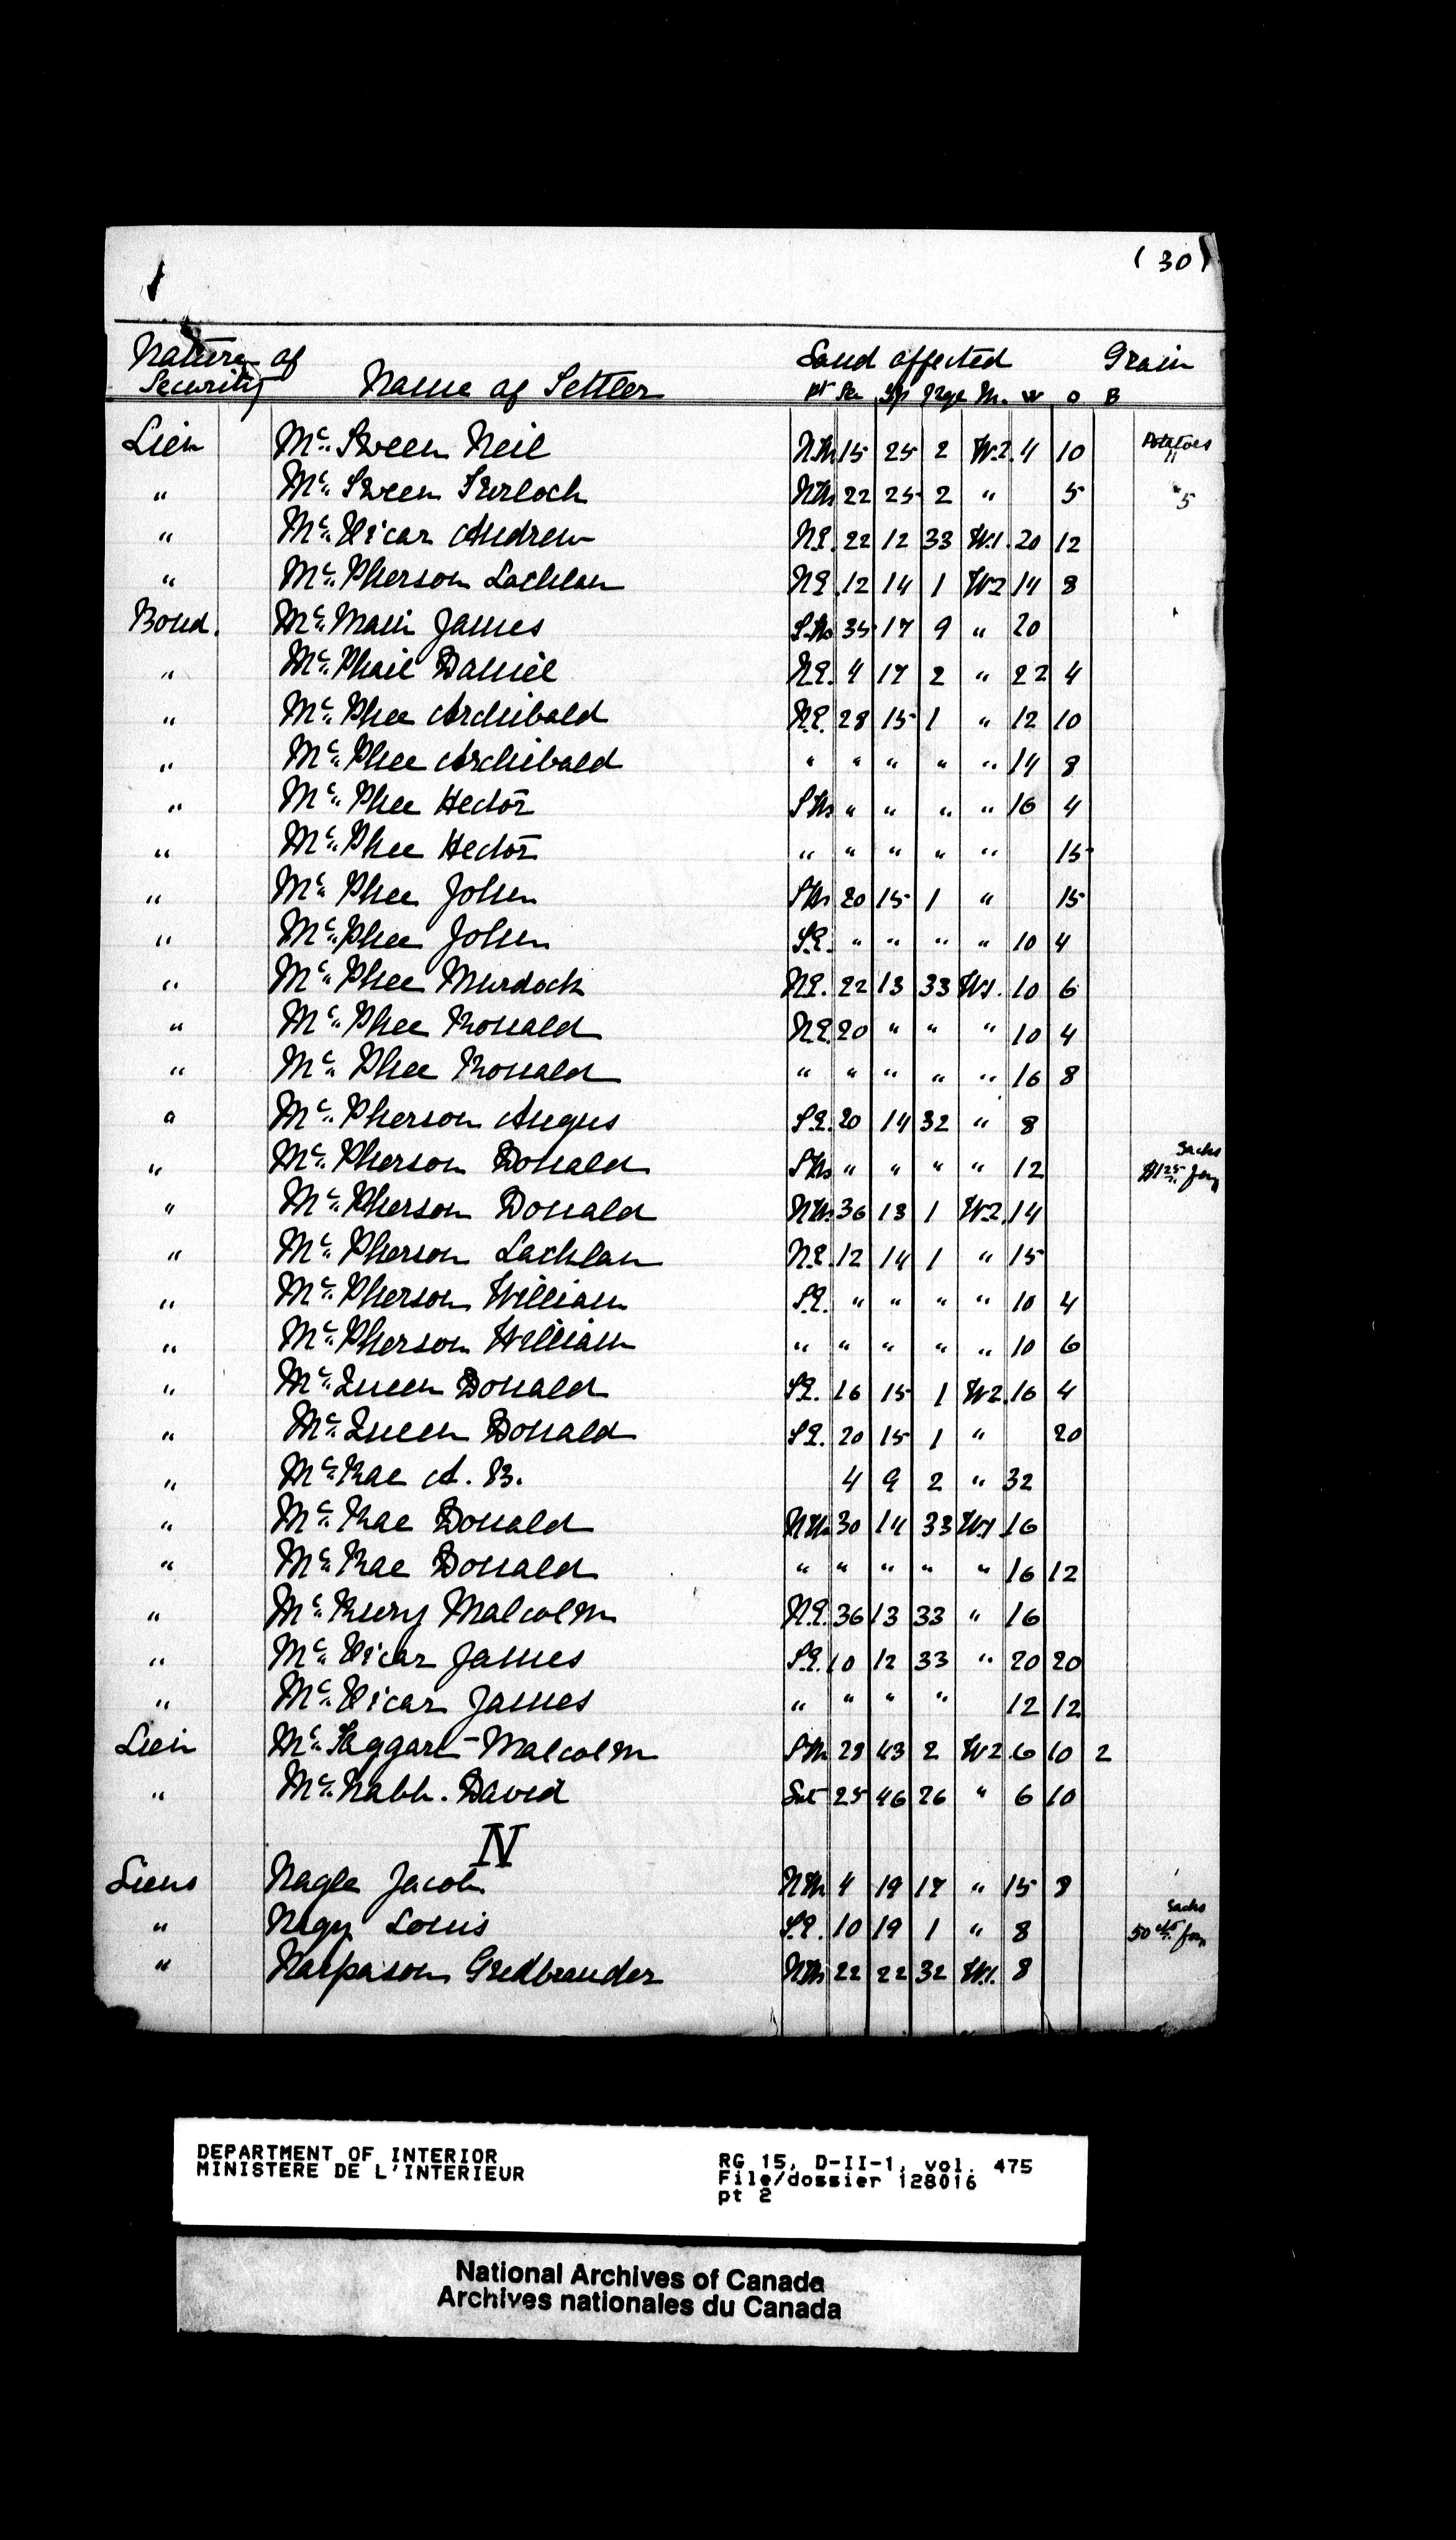 (30)
Nature of Security Name of Settler Land affected Grain
pt Sec Tp Rge M. W O B
Lien Mc. Sween Neil N.W. 15 25 2 W2. 4 10 Potatoes 11
" Mc. Sween Turloch N.W. 22 25 2 " 5 " 5
" Mc. Vicar Andrew N.E. 22 12 33 W1. 20 12
" Mc. Pherson Lachlan N.E. 12 14 1 W2 14 8
Bond. Mc. Main James S.W. 35 17 9 " 20
" Mc. Phail Daniel N.E. 4 17 2 " 22 4
" Mc. Phee Archibald N.E. 28 15 1 " 12 10
" Mc. Phee Archibald " " " " " 14 8
" Mc. Phee Hector S.W. " " " " 16 4
" Mc. Phee Hector " " " " " 15
" Mc. Phee John S.W. 20 15 1 " 15
" Mc. Phee John S.E. " " " " 10 4
" Mc. Phee Murdock N.E. 22 13 33 W1. 10 6
" Mc. Phee Ronald N.E. 20 " " " 10 4
" Mc. Phee Ronald " " " " " 16 8
" Mc. Pherson Angus S.E. 20 14 32 " 8
" Mc. Pherson Donald S.W. " " " " 12 Sacks $1.25 for
" Mc. Pherson Donald N.W. 36 13 1 W2. 14
" Mc. Pherson Lachlan N.E. 12 14 1 " 15
" Mc. Pherson William S.E. " " " " 10 4
" Mc. Pherson William " " " " " 10 6
" Mc. Queen Donald S.E. 16 15 1 W2. 16 4
" Mc. Queen Donald S.E. 20 15 1 " 20
" Mc. Rae A. B. 4 9 2 " 32
" Mc. Rae Donald N.W. 30 14 33 W1 16
" Mc. Rae Donald " " " " " 16 12
" Mc. Rury Malcolm N.E. 36 13 33 " 16
" Mc. Vicar James S.E. 10 12 33 " 20 20
" Mc. Vicar James " " " " 12 12
Lien Mc. Taggart Malcolm S.W. 28 43 2 W2. 6 10 2
" Mc. Nabb. David 25 46 26 " 6 10
N
Liens Nagle Jacob N.W. 4 19 17 " 15 8
" Nagy Louis S.E. 10 19 1 " 8 Sacks 50 cts for
" Narfason Gudbrandur N.W. 22 22 32 W1. 8
DEPARTMENT OF INTERIOR
MINISTERE DE L'INTERIEUR
RG 15, D-II-1, vol. 475
File/dossier 128016
pt 2
National Archives of Canada
Archives nationales du Canada